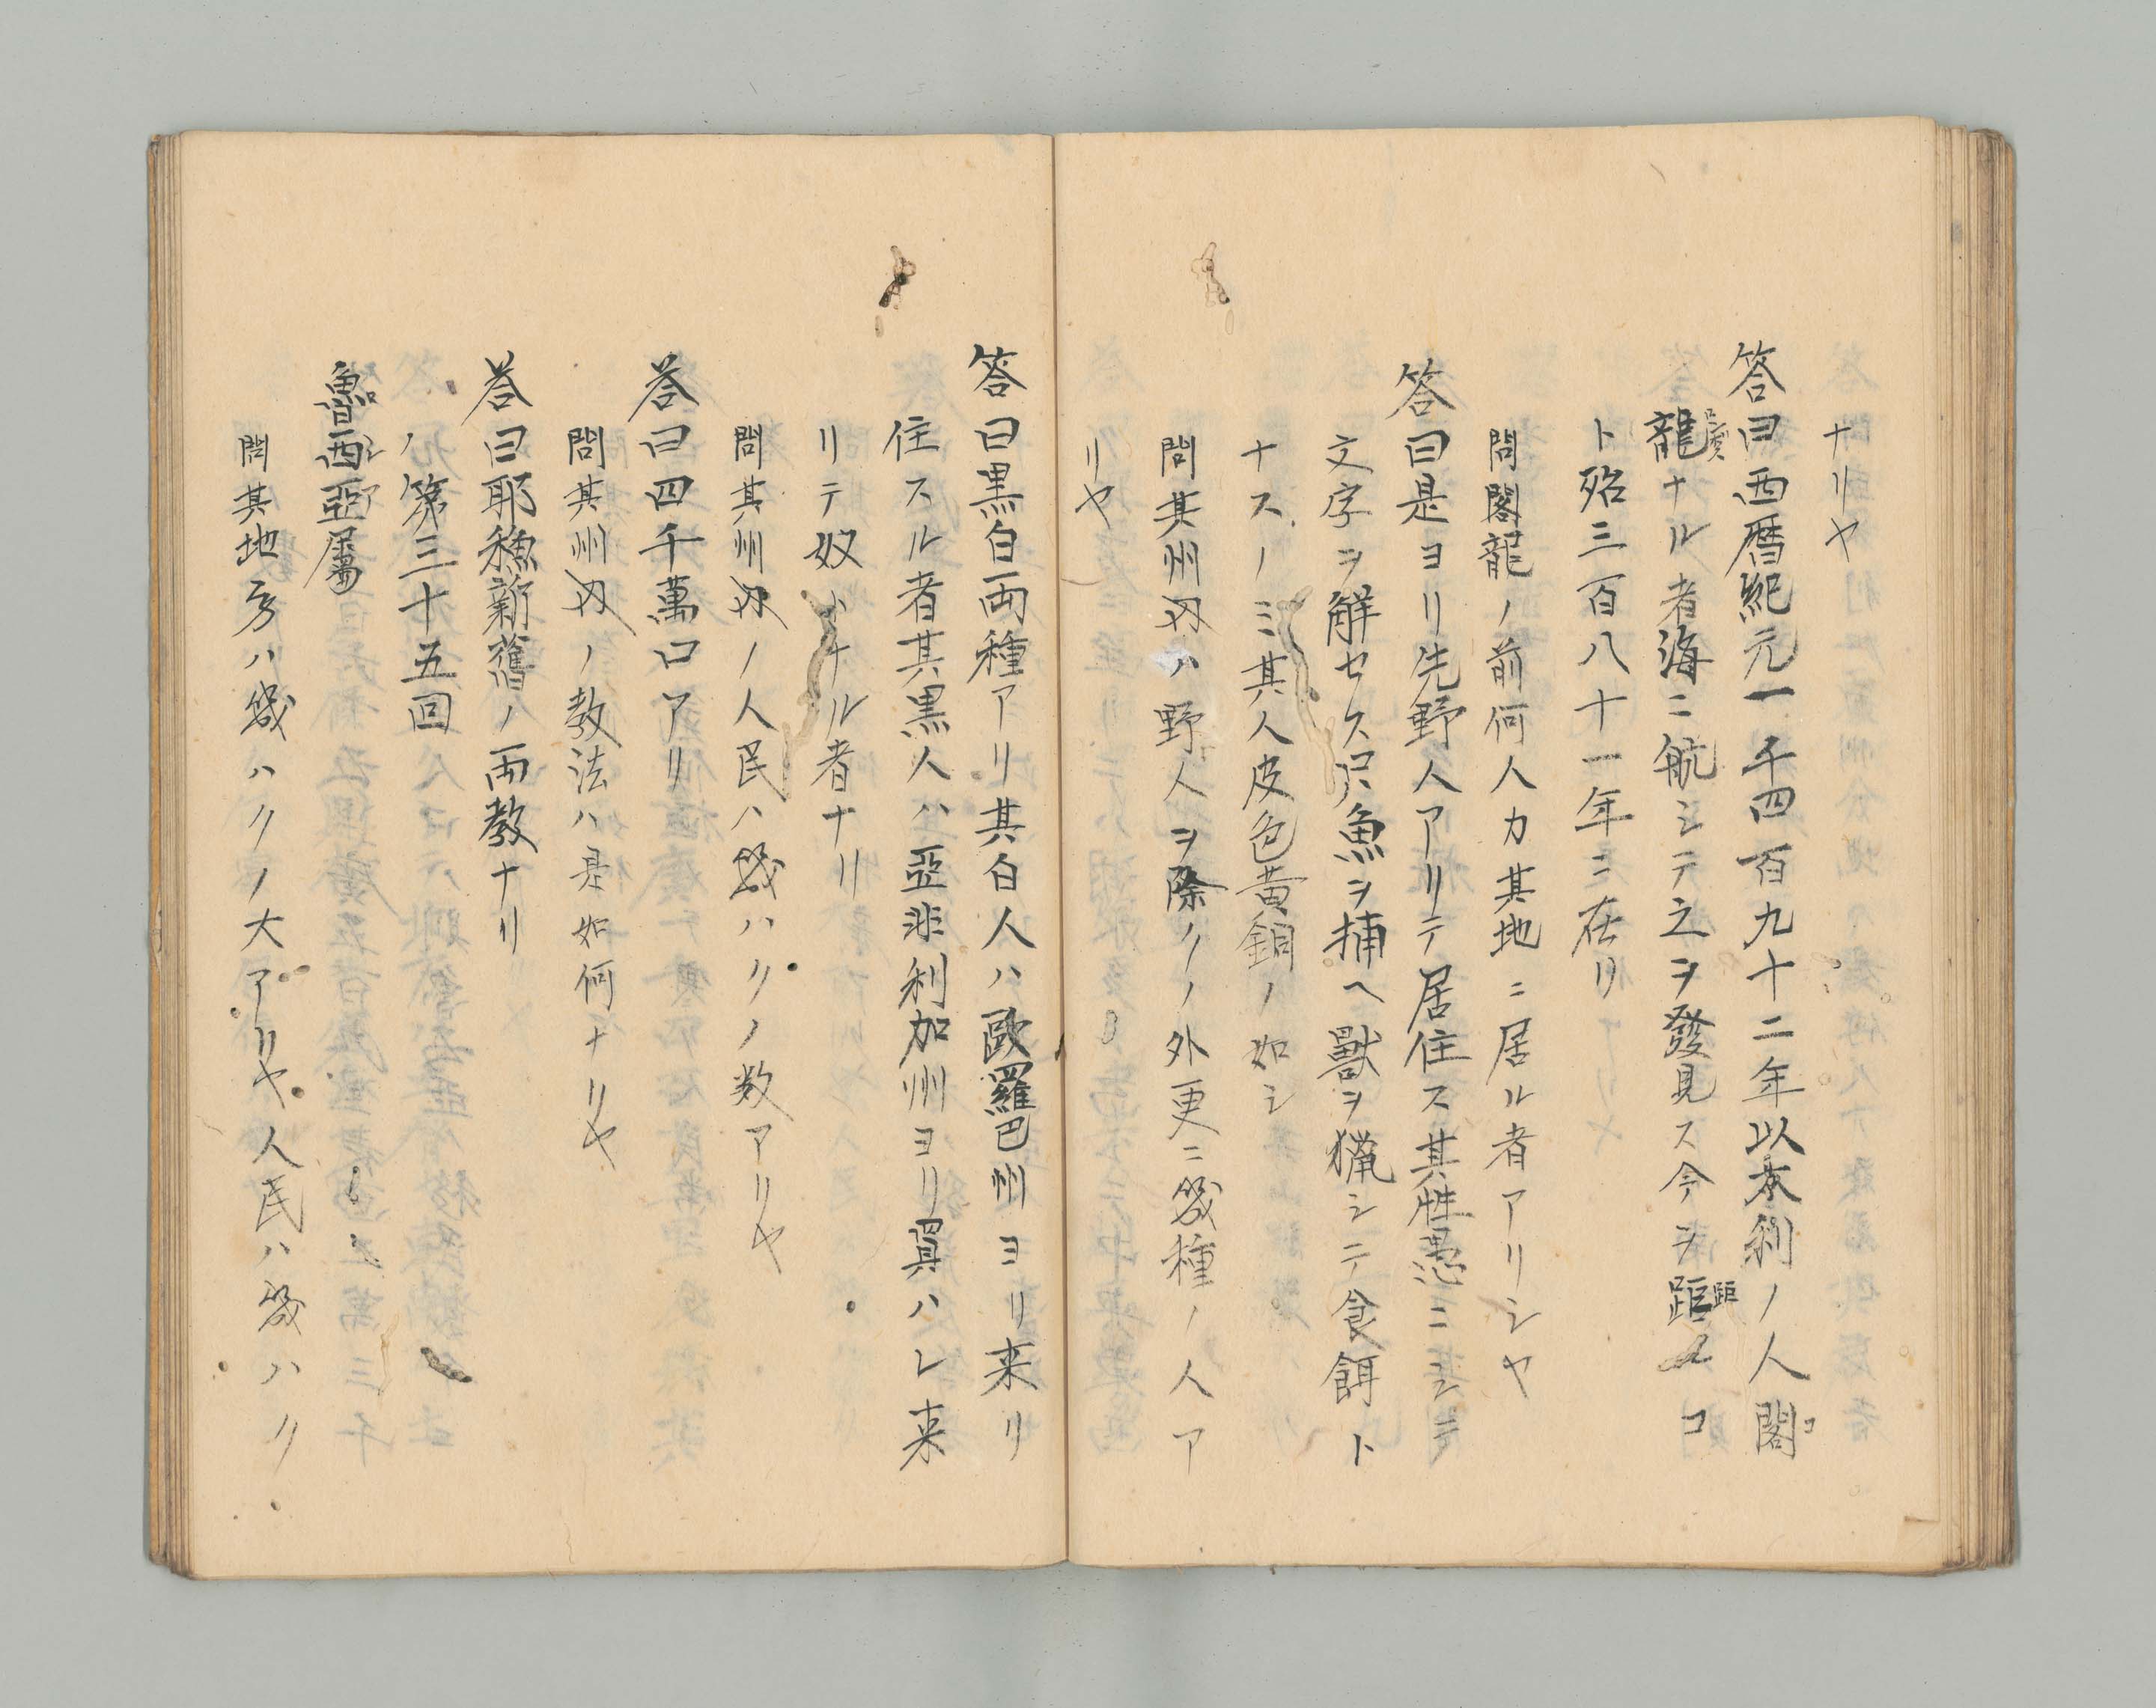 ナリヤ
答曰西暦紀元一千四百九十二年以太利ノ人閣
龍ナル者海ニ航シテ之ヲ發見ス今ヲ距ルコ
ト殆三百八十一年ニ在リ
問閣龍ノ前何人カ其地ニ居ル者アリシヤ
答曰是ヨリ先野人アリテ居住ス其性愚ニシテ
文字ヲ解セス只魚ヲ捕ヘ獸ヲ猟シテ食餌ト
ナスノミ其人皮色黄銅ノ如シ
問其州内ハ野人ヲ除クノ外更ニ幾種ノ人ア
リヤ
答曰黒白両種アリ其白人ハ歐羅巴州ヨリ来リ
住スル者其黒人ハ亞非利加州ヨリ買ハレ来
リテ奴トナル者ナリ
問其州内ノ人民ハ幾ハクノ数アリヤ
答曰四千萬口アリ
問其州内ノ教法ハ是如何ナリヤ
答曰耶穌新舊ノ両教ナリ
ノ第三十五回
魯西亞属
問其地方ハ幾ハクノ大アリヤ人民ハ幾ハク